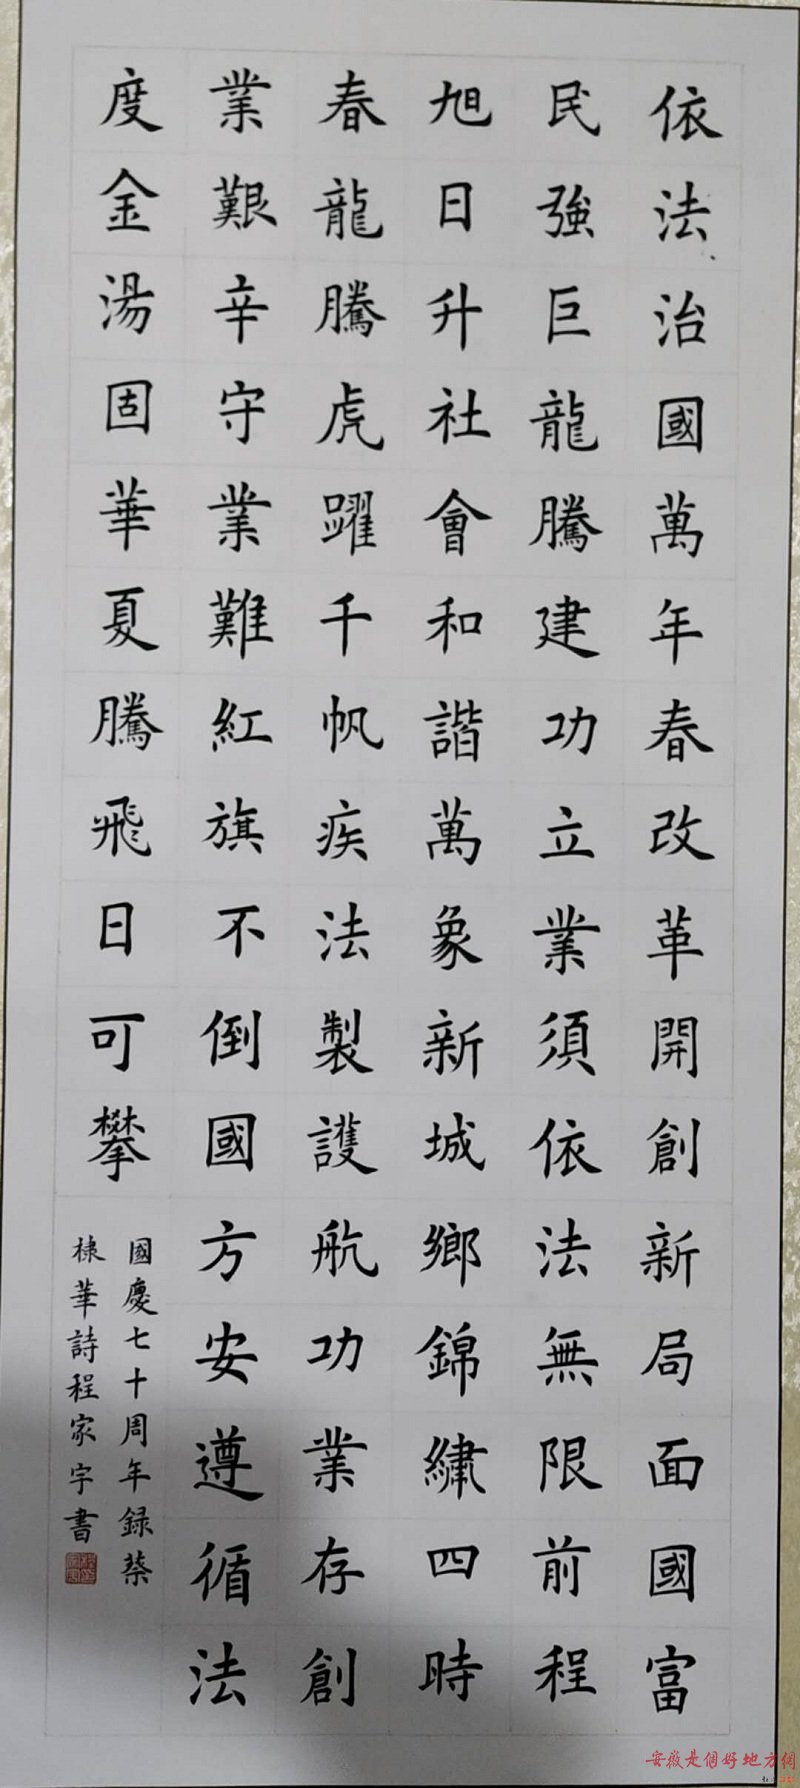 依法治國萬年春改革開創新局面國富
民強巨龍騰建功立業須依法無限前程
旭日升社會和諧萬象新城鄉錦繡四時
春龍騰虎躍千帆疾法製護航功業存創
業艱辛守業難紅旗不倒國方安遵循法
度金湯固華夏騰飛日可攀
國慶七十周年録蔡
棣華詩程家宇書
安徽是個好地方網